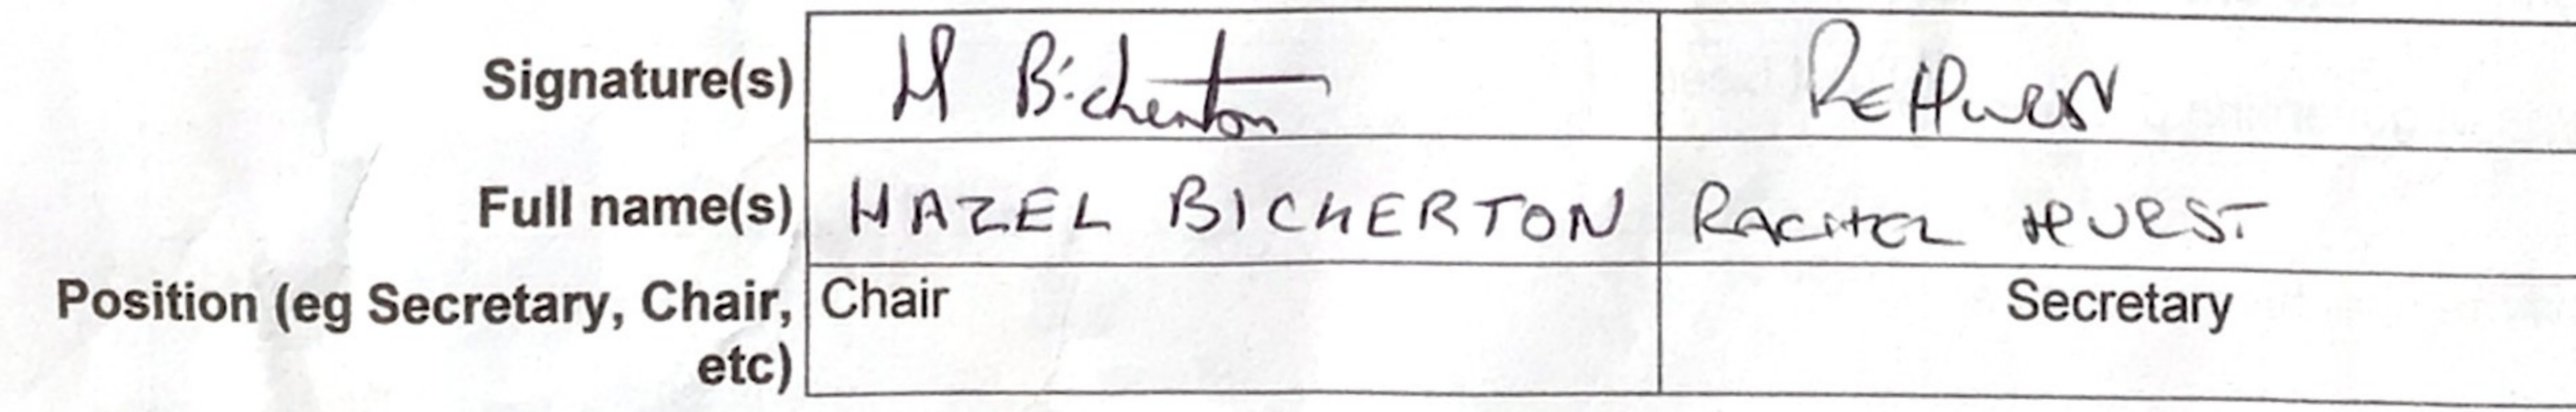 Signature(s) H Bickerton REHurst
Full name(s) HAZEL BICKERTON RACHEL HURST
Position (eg Secretary, Chair, Chair Secretary
etc)